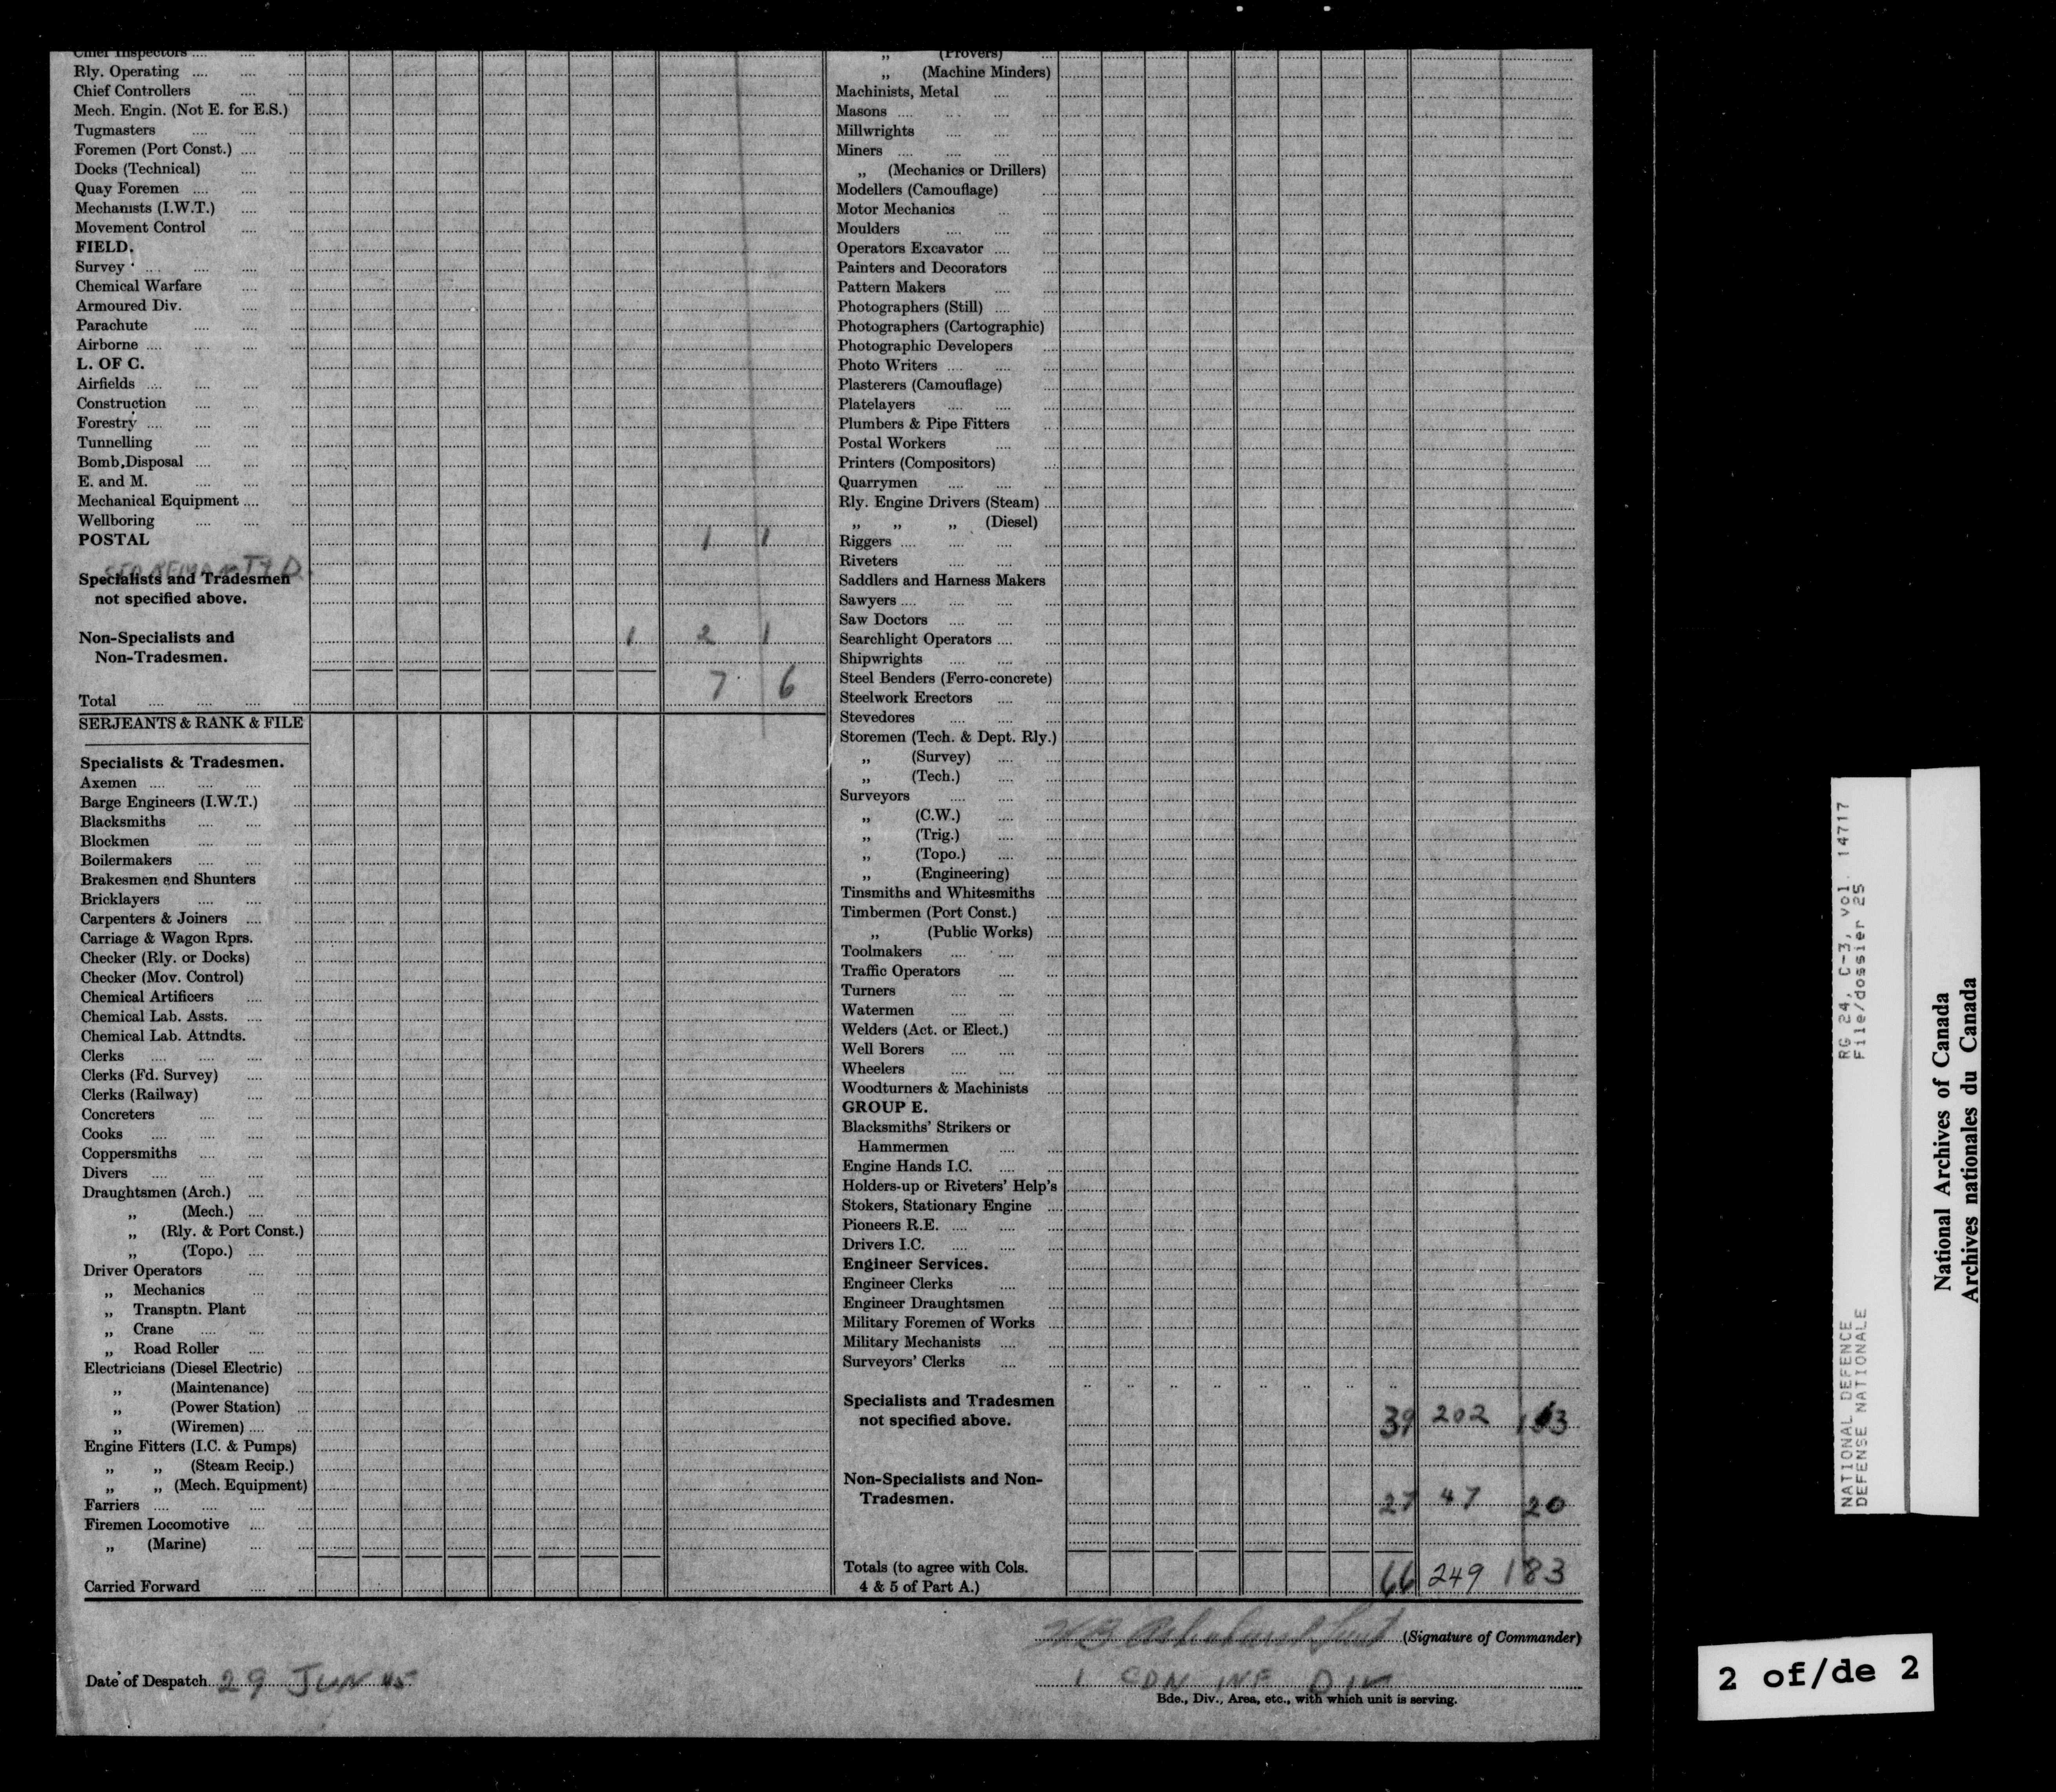 Chief Inspectors ....
Rly. Operating .... ....
Chief Controllers ....
Mech. Engin. (Not E. for E.S.)
Tugmasters .... ....
Foremen (Port Const.) ....
Docks (Technical) ....
Quay Foremen .... ....
Mechanists (I.W.T.) ....
Movement Control ....
FIELD.
Survey .... .... ....
Chemical Warfare ....
Armoured Div. ....
Parachute .... ....
Airborne .... .... ....
L. OF C.
Airfields .... .... ....
Construction .... ....
Forestry .... .... ....
Tunnelling .... ....
Bomb Disposal .... ....
E. and M. .... ....
Mechanical Equipment ....
Wellboring .... ....
POSTAL 1 1
Specialists and Tradesmen
not specified above.
Non-Specialists and 1 2 1
Non-Tradesmen.
7 6
Total .... .... .... ....
SERJEANTS & RANK & FILE
Specialists & Tradesmen.
Axemen .... .... ....
Barge Engineers (I.W.T.)
Blacksmiths .... ....
Blockmen .... ....
Boilermakers .... ....
Brakesmen and Shunters
Bricklayers .... ....
Carpenters & Joiners ....
Carriage & Wagon Rprs.
Checker (Rly. or Docks)
Checker (Mov. Control)
Chemical Artificers ....
Chemical Lab. Assts. ....
Chemical Lab. Attndts.
Clerks .... .... ....
Clerks (Fd. Survey) ....
Clerks (Railway) ....
Concreters .... ....
Cooks .... .... ....
Coppersmiths .... ....
Divers .... .... ....
Draughtsmen (Arch.) ....
„ (Mech.) ....
„ (Rly. & Port Const.)
„ (Topo.) ....
Driver Operators ....
„ Mechanics ....
„ Transptn. Plant
„ Crane .... ....
„ Road Roller ....
Electricians (Diesel Electric)
„ (Maintenance)
„ (Power Station)
„ (Wiremen) ....
Engine Fitters (I.C. & Pumps)
„ „ (Steam Recip.)
„ „ (Mech. Equipment)
Farriers .... .... ....
Firemen Locomotive ....
„ (Marine) ....
Carried Forward ....
„ (Provers)
„ (Machine Minders)
Machinists, Metal ....
Masons .... ....
Millwrights .... ....
Miners .... .... ....
„ (Mechanics or Drillers)
Modellers (Camouflage)
Motor Mechanics ....
Moulders .... ....
Operators Excavator ....
Painters and Decorators
Pattern Makers ....
Photographers (Still) ....
Photographers (Cartographic)
Photographic Developers
Photo Writers .... ....
Plasterers (Camouflage)
Platelayers .... ....
Plumbers & Pipe Fitters
Postal Workers ....
Printers (Compositors)
Quarrymen .... ....
Rly. Engine Drivers (Steam) ....
„ „ „ (Diesel)
Riggers .... .... ....
Riveters .... ....
Saddlers and Harness Makers
Sawyers .... .... ....
Saw Doctors .... ....
Searchlight Operators ....
Shipwrights .... ....
Steel Benders (Ferro-concrete)
Steelwork Erectors ....
Stevedores .... ....
Storemen (Tech. & Dept. Rly.)
„ (Survey) ....
„ (Tech.) ....
Surveyors .... ....
„ (C.W.) ....
„ (Trig.) ....
„ (Topo.) ....
„ (Engineering)
Tinsmiths and Whitesmiths
Timbermen (Port Const.)
„ (Public Works)
Toolmakers .... ....
Traffic Operators ....
Turners .... ....
Watermen .... ....
Welders (Act. or Elect.)
Well Borers .... ....
Wheelers .... ....
Woodturners & Machinists
GROUP E.
Blacksmiths' Strikers or
Hammermen ....
Engine Hands I.C. ....
Holders-up or Riveters' Help's
Stokers, Stationary Engine
Pioneers R.E. .... ....
Drivers I.C. .... ....
Engineer Services.
Engineer Clerks ....
Engineer Draughtsmen
Military Foremen of Works
Military Mechanists ....
Surveyors' Clerks ....
Specialists and Tradesmen
not specified above. 39 202 163
Non-Specialists and Non-
Tradesmen. 27 47 20
Totals (to agree with Cols.
4 & 5 of Part A.) 66 249 183
(Signature of Commander)
Date of Despatch 29 JUN 45
1 CDN INF DIV
Bde., Div., Area, etc., with which unit is serving.
NATIONAL DEFENCE RG 24, C-3, vol. 14717
DEFENSE NATIONALE File/dossier 25
National Archives of Canada
Archives nationales du Canada
2 of/de 2